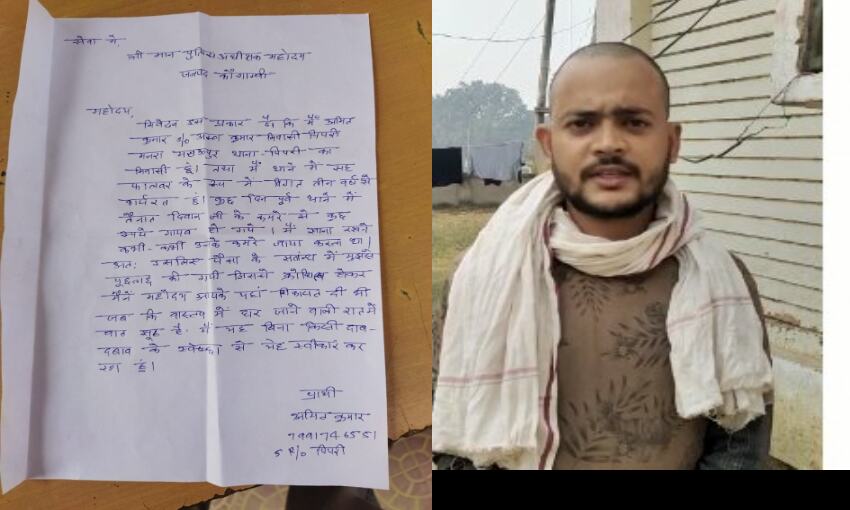 सेवा में,
श्री मान पुलिस अधीक्षक महोदय
जनपद कौशाम्बी
महोदय,
निवेदन इस प्रकार है कि मैं अमित
कुमार s/o कुमार निवासी पिपरी
थाना - पिपरी का
निवासी हूं। तथा मैं थाने में
के रूप में विगत तीन वर्ष से
कार्यरत हूं। कुछ दिन पूर्व थाने में
तैनात दिवान जी के कमरे से कुछ
रुपये गायब हो गये। मैं खाना रखने
कभी-कभी उनके कमरे जाया करता था।
अतः उसमिस पैसा के सबन्ध में मुझसे
की गयी जिससे होकर
मैंने महोदय आपके यहां शिकायत दी थी
जब कि वास्तव में जाने वाली
बात झूठ है। मैं यह बिना किसी डाव-
दबाव के स्वेच्छा से यह स्वीकार कर
रहा हूं।
प्रार्थी
अमित कुमार
7991746551
पिपरी